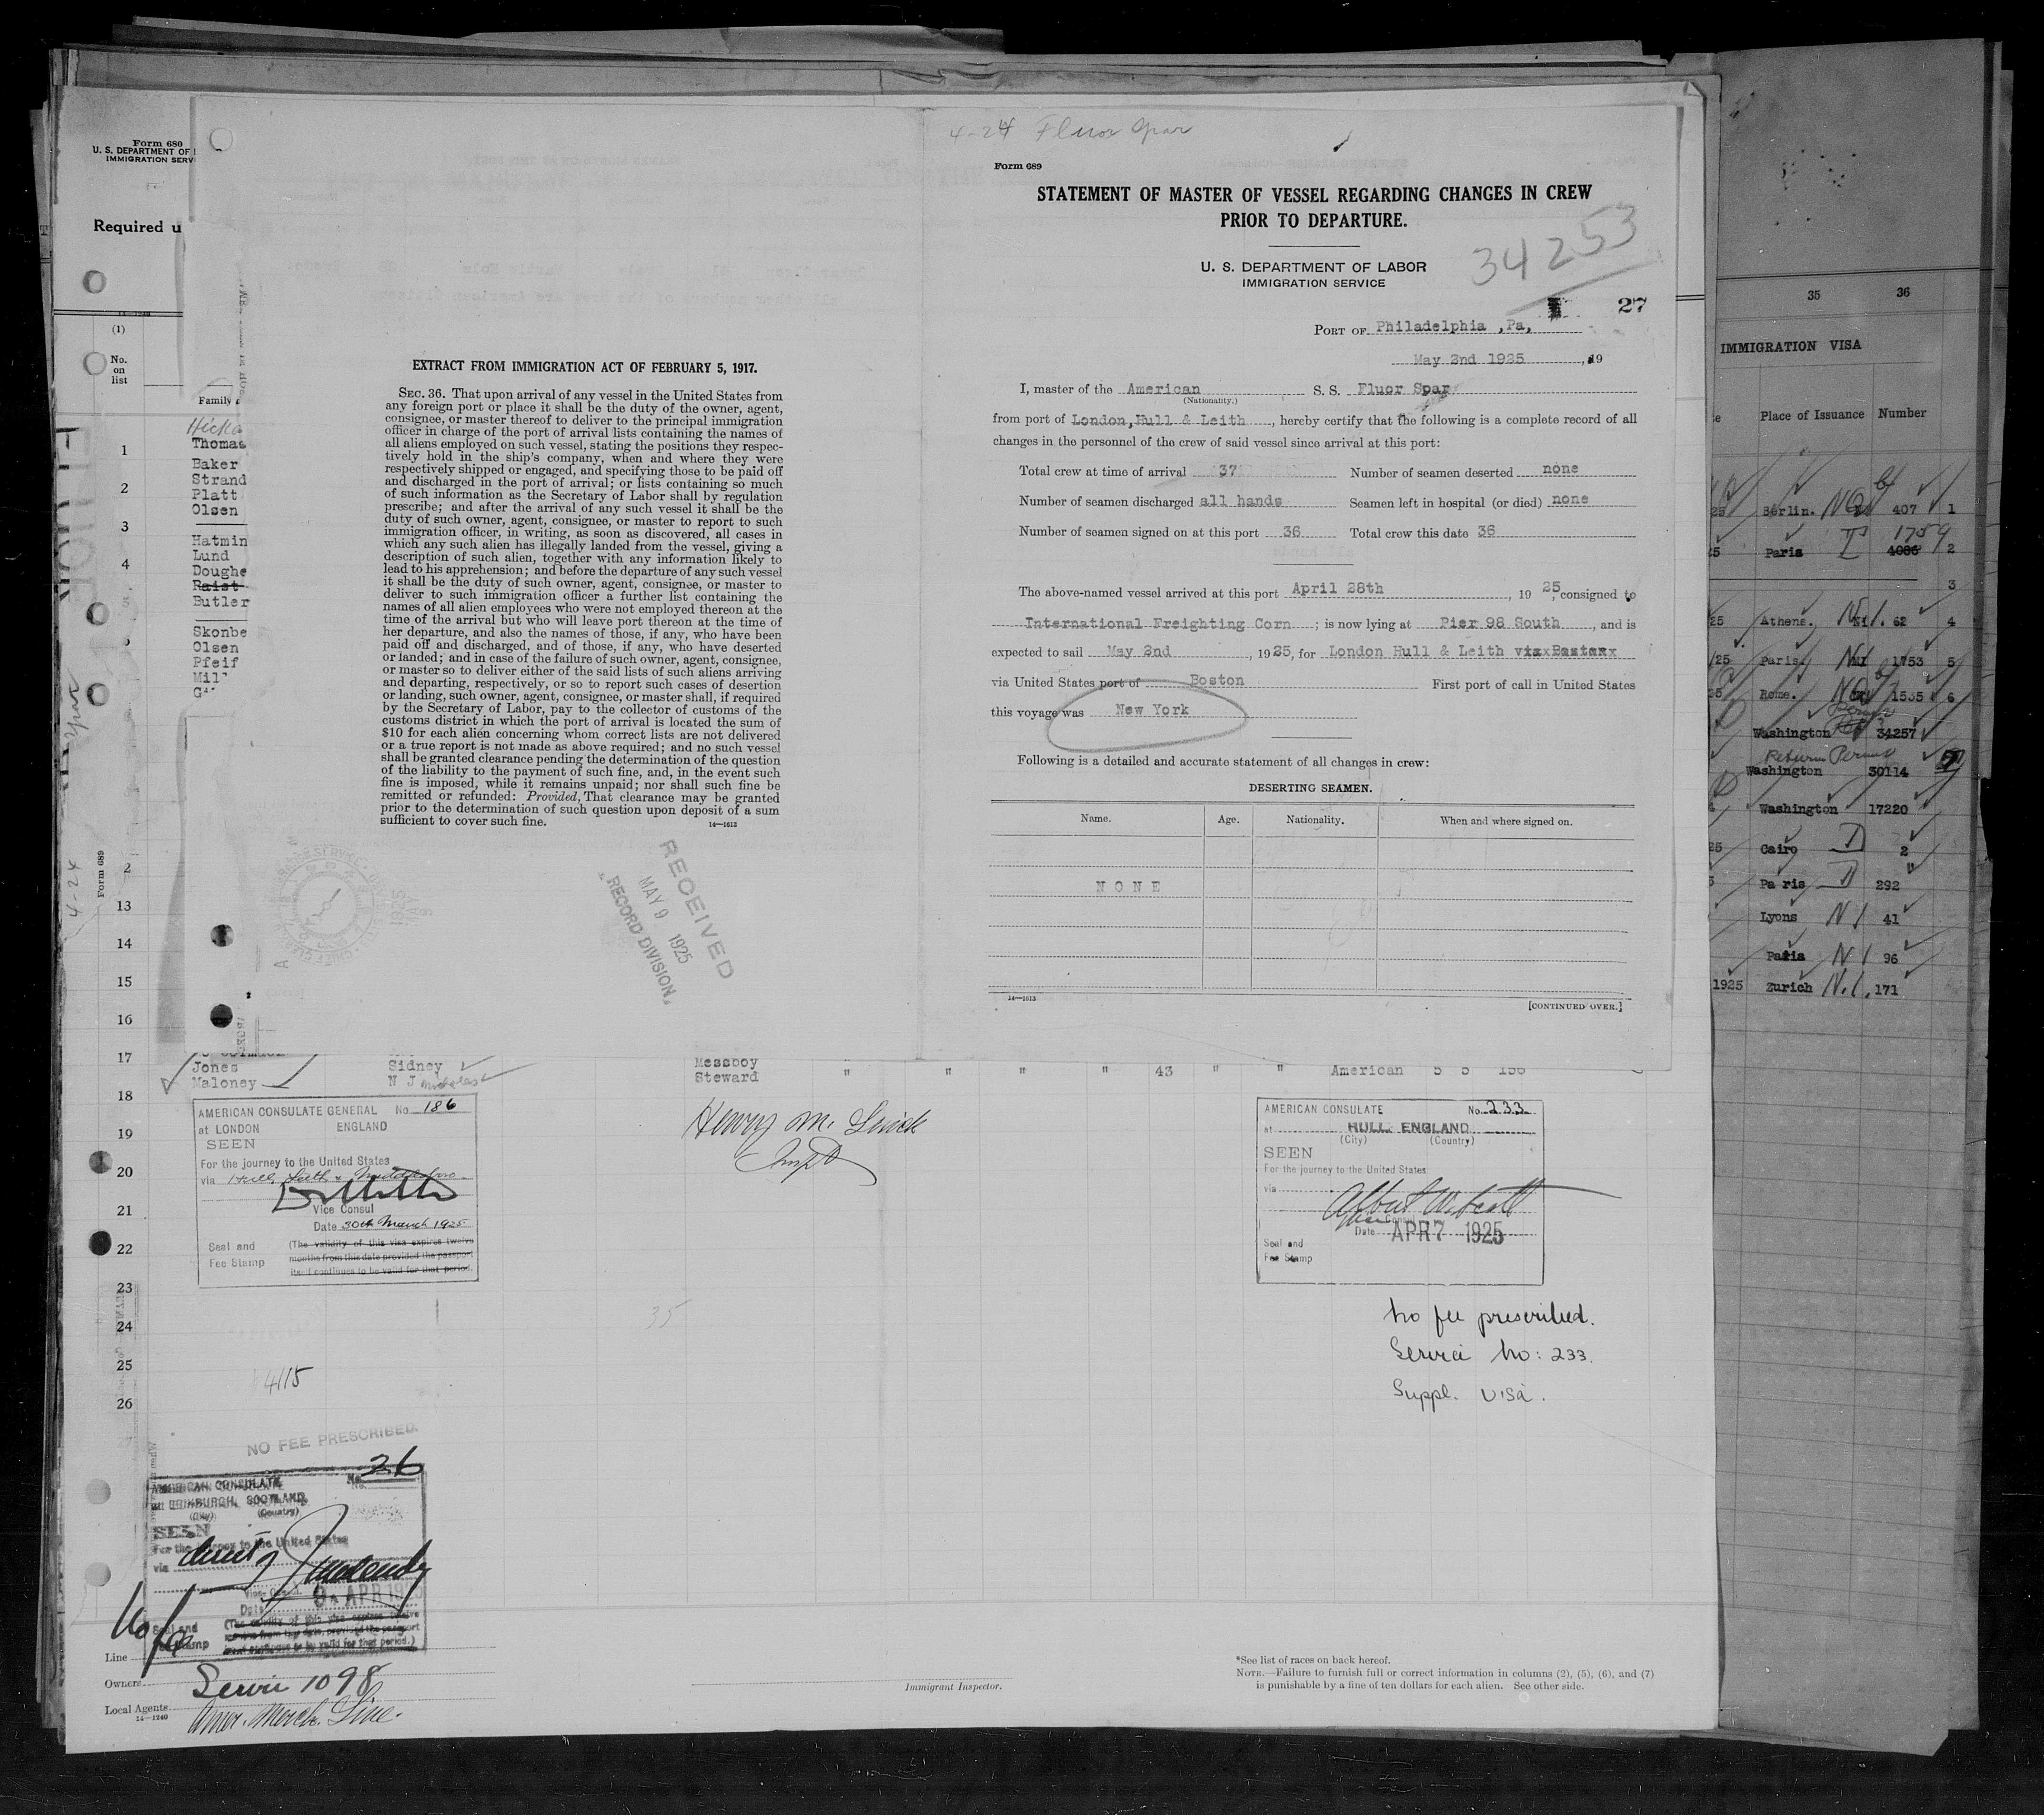 4-24 Fluor Spar
Form 689
STATEMENT OF MASTER OF VESSEL REGARDING CHANGES IN CREW
PRIOR TO DEPARTURE.
34253
U. S. DEPARTMENT OF LABOR
IMMIGRATION SERVICE
27
PORT OF Philadelphia ,Pa,
May 2nd 1925 , 19
I, master of the American S. S. Fluor Spar
(Nationality.)
from port of London,Hull & Leith , hereby certify that the following is a complete record of all
changes in the personnel of the crew of said vessel since arrival at this port:
Total crew at time of arrival 37 Number of seamen deserted none
Number of seamen discharged all hands Seamen left in hospital (or died) none
Number of seamen signed on at this port 36 Total crew this date 36
The above-named vessel arrived at this port April 28th , 19 25, consigned to
International Freighting Corn ; is now lying at Pier 98 South , and is
expected to sail May 2nd , 1925, for London Hull & Leith
via United States port of Boston First port of call in United States
this voyage was New York
Following is a detailed and accurate statement of all changes in crew:
DESERTING SEAMEN.
Name. Age. Nationality. When and where signed on.
N O N E
14—1613
[CONTINUED OVER.]
EXTRACT FROM IMMIGRATION ACT OF FEBRUARY 5, 1917.
SEC. 36. That upon arrival of any vessel in the United States from
any foreign port or place it shall be the duty of the owner, agent,
consignee, or master thereof to deliver to the principal immigration
officer in charge of the port of arrival lists containing the names of
all aliens employed on such vessel, stating the positions they respec-
tively hold in the ship's company, when and where they were
respectively shipped or engaged, and specifying those to be paid off
and discharged in the port of arrival; or lists containing so much
of such information as the Secretary of Labor shall by regulation
prescribe; and after the arrival of any such vessel it shall be the
duty of such owner, agent, consignee, or master to report to such
immigration officer, in writing, as soon as discovered, all cases in
which any such alien has illegally landed from the vessel, giving a
description of such alien, together with any information likely to
lead to his apprehension; and before the departure of any such vessel
it shall be the duty of such owner, agent, consignee, or master to
deliver to such immigration officer a further list containing the
names of all alien employees who were not employed thereon at the
time of the arrival but who will leave port thereon at the time of
her departure, and also the names of those, if any, who have been
paid off and discharged, and of those, if any, who have deserted
or landed; and in case of the failure of such owner, agent, consignee,
or master so to deliver either of the said lists of such aliens arriving
and departing, respectively, or so to report such cases of desertion
or landing, such owner, agent, consignee, or master shall, if required
by the Secretary of Labor, pay to the collector of customs of the
customs district in which the port of arrival is located the sum of
$10 for each alien concerning whom correct lists are not delivered
or a true report is not made as above required; and no such vessel
shall be granted clearance pending the determination of the question
of the liability to the payment of such fine, and, in the event such
fine is imposed, while it remains unpaid; nor shall such fine be
remitted or refunded: Provided, That clearance may be granted
prior to the determination of such question upon deposit of a sum
sufficient to cover such fine.
14—1613
RECEIVED
MAY 9 1925
RECORD DIVISION.
Form 680
U. S. DEPARTMENT OF
IMMIGRATION SERV
Required u
(1)
No.
on
list
Family
1 Thomas
Baker
2 Strand
Platt
Olsen
3
Hatmin
Lund
4 Doughe
Raist
Butler
Skonbe
Olsen
Pfeif
Form 689
4-24
13
14
15
16
17 Jones Sidney Messboy
Maloney N J Nicholas Steward " " " " 43 " " American 5 5 156
18
19
20
21
22
23
24
25
26
AMERICAN CONSULATE GENERAL No. 186
at LONDON ENGLAND
SEEN
For the journey to the United States
via Hull, Leith & Middlesbro
Vice Consul
Date 30th March 1925
Seal and (The validity of this visa expires twelve
Fee Stamp months from this date provided the passport
itself continues to be valid for that period.
Henry M. Linick
AMERICAN CONSULATE No. 233
at HULL ENGLAND
(City) (Country)
SEEN
For the journey to the United States
via
Date APR 7 1925
Seal and
Fee Stamp
No fee prescribed.
Service No: 233.
Suppl. Visa.
35
4115
NO FEE PRESCRIBED.
AMERICAN CONSULATE No. 36
at EDINBURGH, SCOTLAND.
(City) (Country)
SEEN
For the journey to the United States
via
Date 9 APR 192
Seal and
Fee Stamp
No fee
Line
Owners
Service 1098
Local Agents
Amer. Merch. Line.
14—1240
Immigrant Inspector.
*See list of races on back hereof.
NOTE.—Failure to furnish full or correct information in columns (2), (5), (6), and (7)
is punishable by a fine of ten dollars for each alien. See other side.
35 36
IMMIGRATION VISA
Place of Issuance Number
25 Berlin. 407 1
5 Paris 1759 4086 2
3
25 Athens. 62 4
/25 Paris. 1753 5
25 Rome. 1535 6
Washington 34257
Return Permit
Washington 30114 7
Washington 17220
25 Cairo 2
Paris 292
Lyons N I 41
Paris N I 96
1925 Zurich N.I. 171